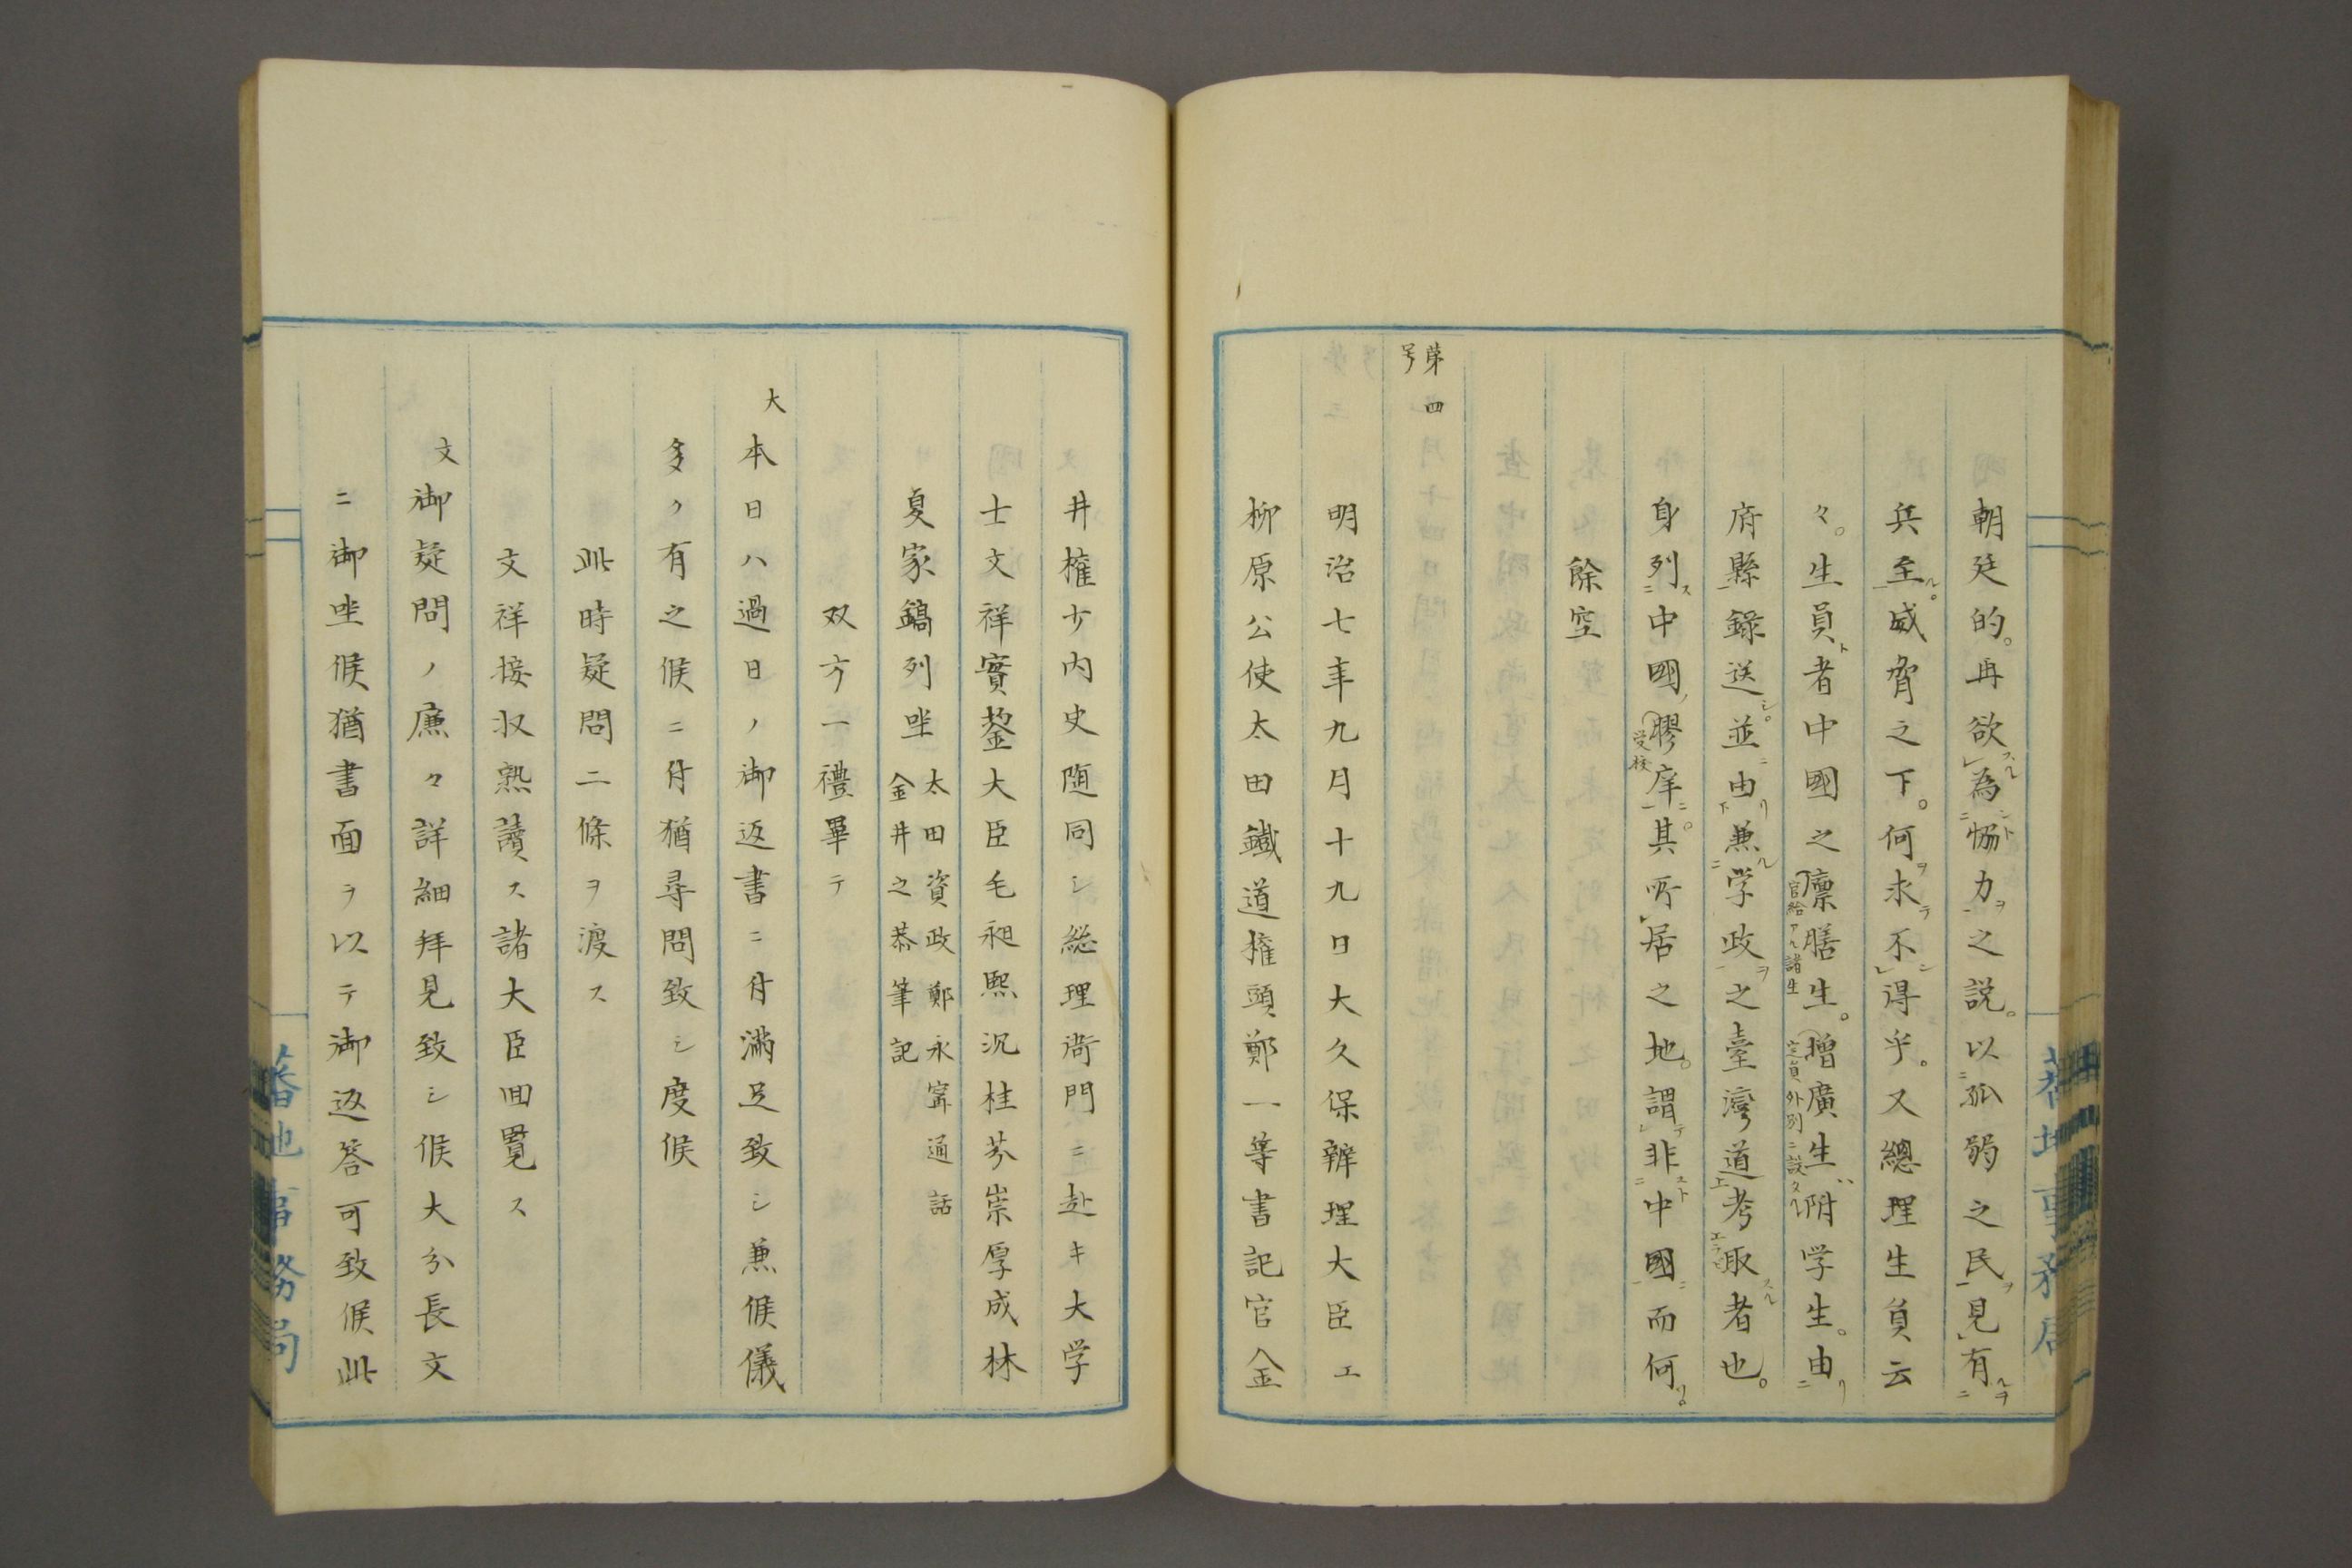 朝廷的。再欲為恊力之説。以孤弱之民見有
兵至威脅之下。何求不得乎。又總理生負云
々。生員者中國之廩膳生。増廣生附学生。由
府縣錄送並由兼学政之臺灣道考取者也。
身列中國膠庠。其所居之地。謂非中國而何。
餘空
第四号
明治七年九月十九日大久保辨理大臣エ
柳原公使太田鐵道權頭鄭一等書記官金
井權少内史随同シ総理衙門ニ赴キ大学
士文祥寳鋆大臣毛昶熙沉桂芬崇厚成林
夏家鎬列坐 太田資政鄭永寗通話
金井之恭筆記
双方一禮畢テ
大 本日ハ過日ノ御返書ニ付満足致シ兼候儀
多ク有之候ニ付猶尋問致シ度候
此時疑問二條ヲ渡ス
文祥接収熟讀ス諸大臣回覧ス
文 御疑問ノ廉々詳細拜見致シ候大分長文
ニ御坐候猶書面ヲ以テ御返答可致候此
蕃地事務局
蕃地事務局